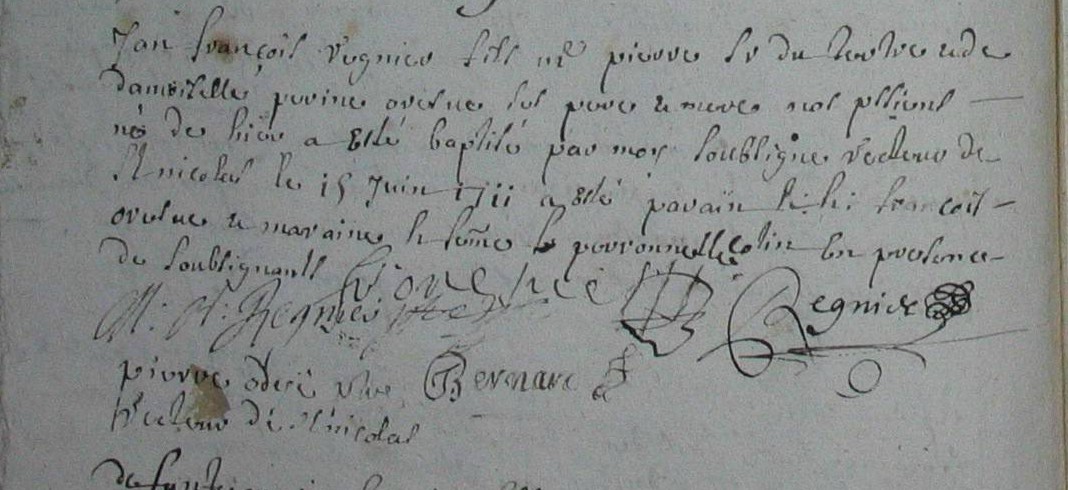 Jan françois regnier fils me pierre sr du tertre et de
damoiselle perine oresve ses pere et mere nos pssients
né de hier a esté baptisé par moy soubsigne recteur de
St nicolas le 15 Juin 1711 a esté parain françois
oresve et maraine h fame perronnelle colin en presence
de soubsignants
M: Regnier Regnier
pierre Bernard
Recteur de St nicolas